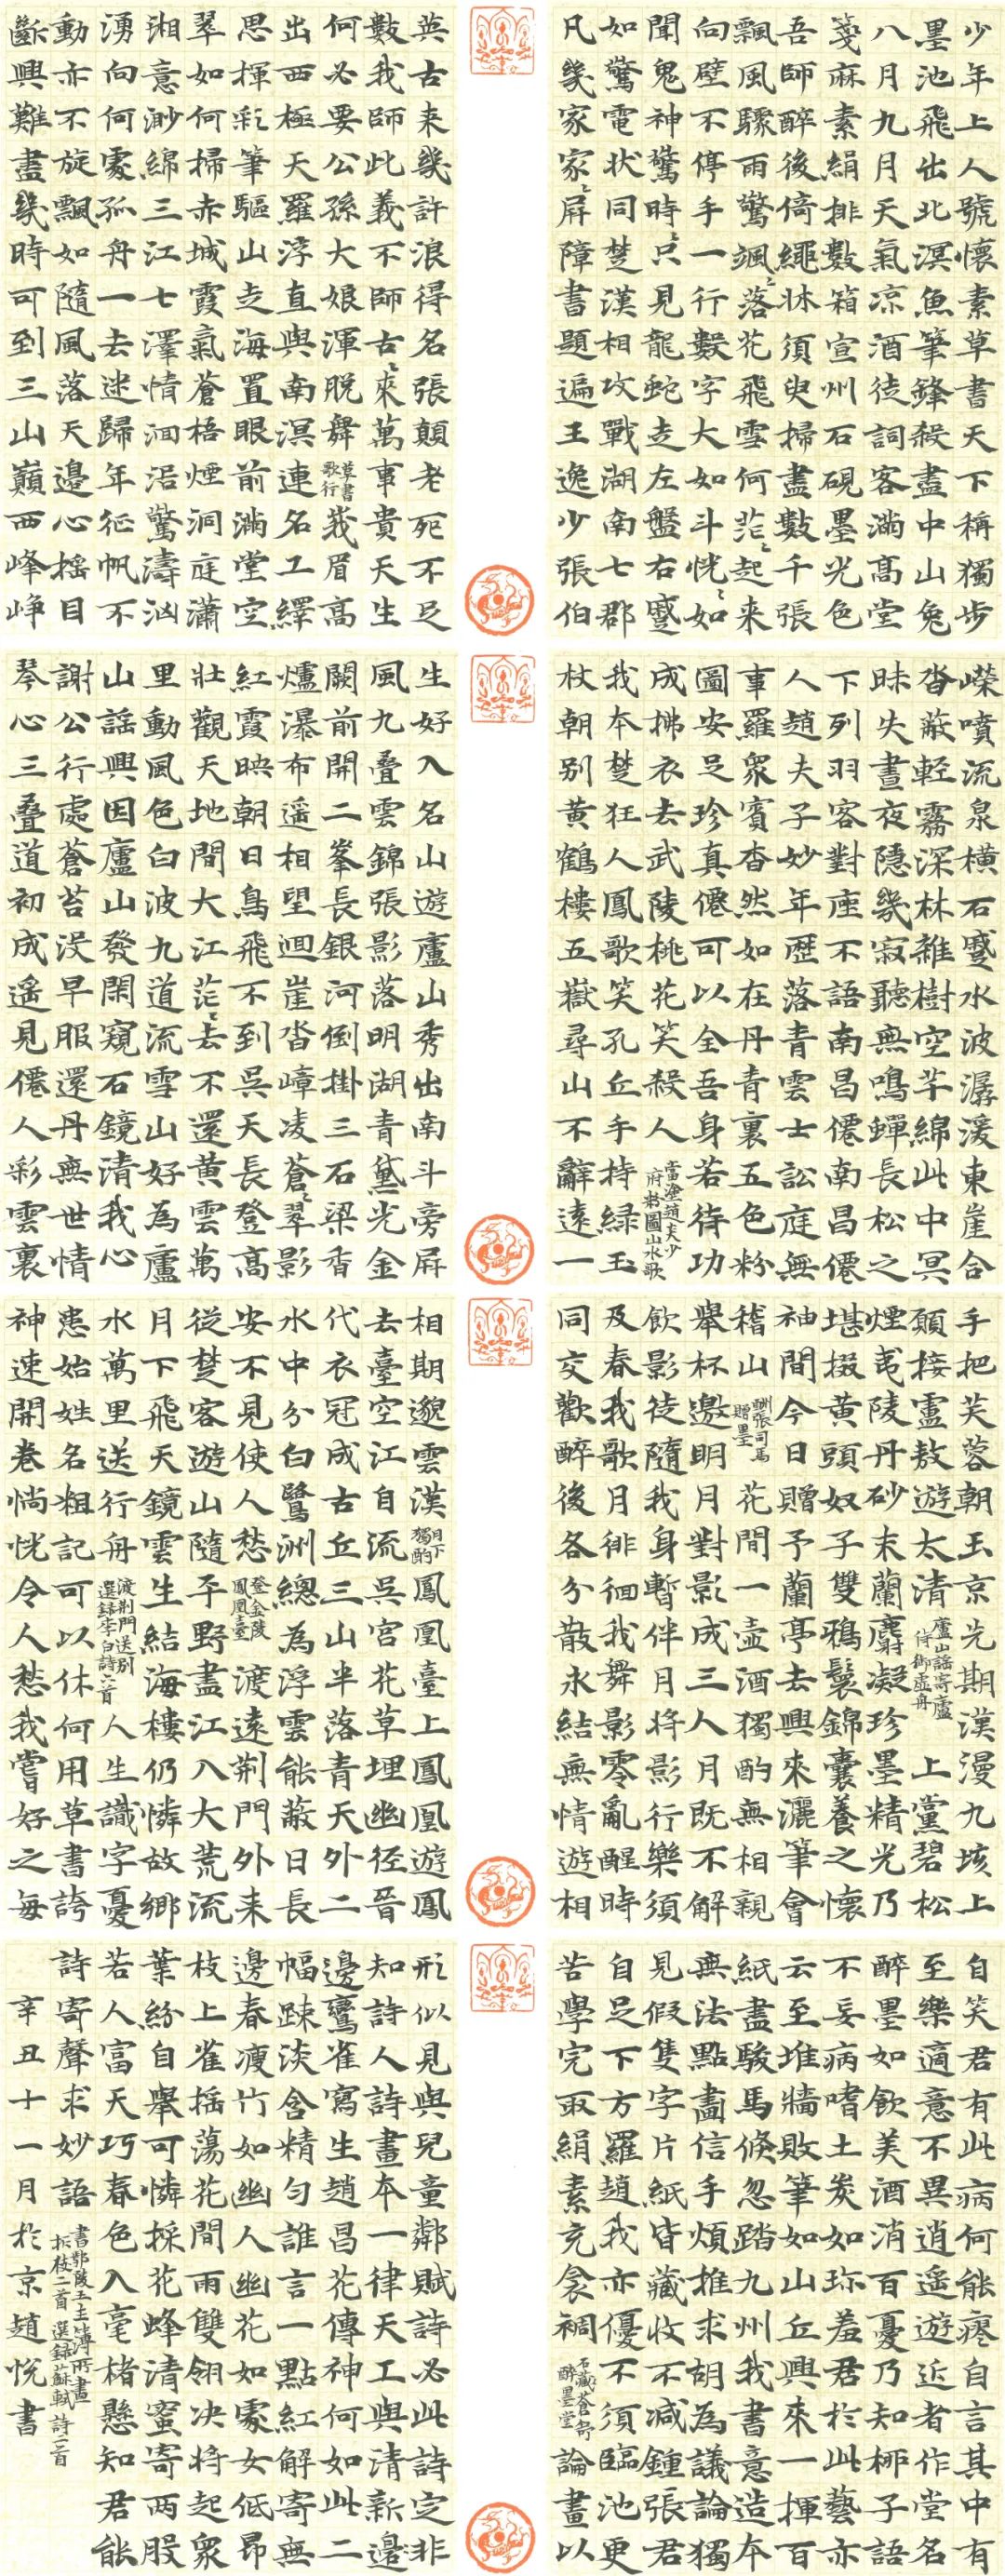 少年上人號懷素草書天下稱獨步
墨池飛出北溟魚筆鋒殺盡中山兔
八月九月天氣凉酒徒詞客滿高堂
箋麻素絹排數箱宣州石硯墨光色
吾師醉後倚繩牀須臾掃盡數千張
飄風驟雨驚颯〻落花飛雪何茫〻起來
向壁不停手一行數字大如斗恍〻如
聞鬼神驚時〻只見龍蛇走左盤右蹙
如驚電狀同楚漢相攻戰湖南七郡
凡幾家家〻屏障書題遍王逸少張伯
英古来幾許浪得名張顛老死不足
數我師此義不師古〻來萬事貴天生
何必要公孫大娘渾脱舞 草書歌行 峩眉高
出西極天羅浮直與南溟連名工繹
思揮彩筆驅山走海置眼前滿堂空
翠如何掃赤城霞氣蒼梧煙洞庭瀟
湘意渺綿三江七澤情洄沿驚濤洶
湧向何處孤舟一去迷歸年征帆不
動亦不旋飄如隨風落天邊心摇目
斷興難盡幾時可到三山巔西峰崢
嶸噴流泉橫石蹙水波潺湲東崖合
沓蔽輕霧深林雜樹空芊綿此中冥
昧失晝夜隱幾寂聽無鳴蟬長松之
下列羽客對座不語南昌僊南昌僊
人趙夫子妙年歷落青雲士訟庭無
事羅衆賓杳然如在丹青裏五色粉
圖安足珍真僊可以全吾身若待功
成拂衣去武陵桃花笑殺人 當塗趙夫少府粉圖山水歌
我本楚狂人鳳歌笑孔丘手持緑玉
杖朝别黄鶴樓五嶽尋山不辭遠一
生好入名山遊廬山秀出南斗旁屏
風九叠雲錦張影落明湖青黛光金
闕前開二峯長銀河倒掛三石梁香
爐瀑布遥相望迴崖沓嶂凌蒼〻翠影
紅霞映朝日鳥飛不到吳天長登高
壯觀天地間大江茫〻去不還黄雲萬
里動風色白波九道流雪山好為廬
山謡興因廬山發閑窺石鏡清我心
謝公行處蒼苔没早服還丹無世情
琴心三叠道初成遥見僊人彩雲裏
手把芙蓉朝玉京先期漢漫九垓上
願接盧敖遊太清 廬山謡寄廬侍御虚舟 上黨碧松
煙夷陵丹砂末蘭麝凝珍墨精光乃
堪掇黄頭奴子雙鴉鬟錦囊養之懷
袖間今日贈予蘭亭去興來灑筆會
稽山 酬張司馬贈墨 花間一壺酒獨酌無相親
舉杯邀明月對影成三人月既不解
飲影徒隨我身暫伴月將影行樂須
及春我歌月徘徊我舞影零亂醒時
同交歡醉後各分散永結無情遊相
相期邈雲漢 月下獨酌 鳳凰臺上鳳凰遊鳳
去臺空江自流吳宫花草埋幽徑晉
代衣冠成古丘三山半落青天外二
水中分白鷺洲總為浮雲能蔽日長
安不見使人愁 登金陵鳳凰臺 渡遠荆門外来
從楚客遊山隨平野盡江入大荒流
月下飛天鏡雲生結海樓仍憐故鄉
水萬里送行舟 渡荆門送别 選録李白詩六首 人生識字憂
患始姓名粗記可以休何用草書誇
神速開卷惝恍令人愁我嘗好之每
自笑君有此病何能瘳自言其中有
至樂適意不異逍遥遊近者作堂名
醉墨如飲美酒消百憂乃知柳子語
不妄病嗜土炭如珎羞君於此藝亦
云至堆牆敗筆如山丘興來一揮百
紙盡駿馬倏忽踏九州我書意造本
無法點畫信手煩推求胡為議論獨
見假隻字片紙皆藏收不减鍾張君
自足下方羅趙我亦優不須臨池更
苦學完取絹素充衾裯 石蒼舒醉墨堂 論畫以
形似見與兒童鄰賦詩必此詩定非
知詩人詩畫本一律天工與清新邊
邊鸞雀寫生趙昌花傳神何如此二
幅疎淡含精匀誰言一點紅解寄無
邊春瘦竹如幽人幽花如處女低昂
枝上雀摇蕩花間雨雙翎决將起衆
葉紛自舉可憐採花蜂清蜜寄兩股
若人富天巧春色入毫楮懸知君能
詩寄聲求妙語 書鄢陵王主簿所畫折枝二首 選録蘇軾詩三首
辛丑十一月於京趙悦書